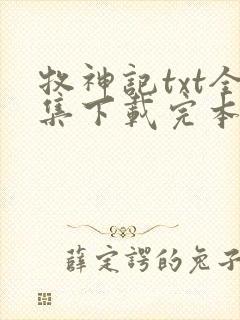 牧神記txt全
集下載完本
薛定諤的兔子